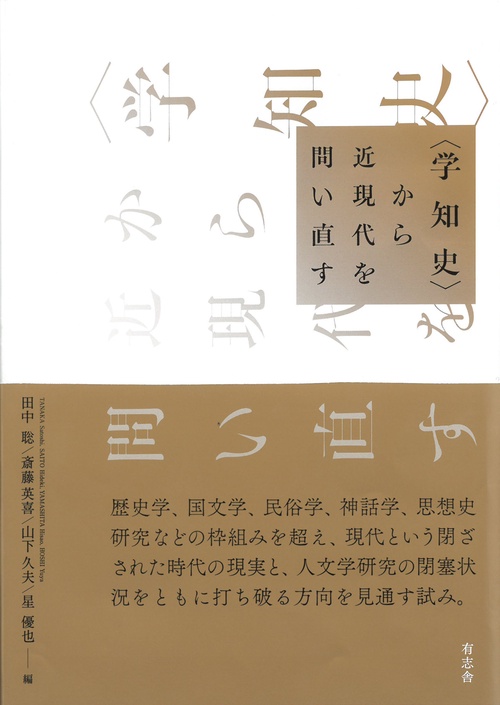 〈学知史〉
から
近現代を
問い直す
〈学知史〉
から
近現代を
問い直す
歴史学、国文学、民俗学、神話学、思想史
研究などの枠組みを超え、現代という閉ざ
された時代の現実と、人文学研究の閉塞状
況をともに打ち破る方向を見通す試み。
田中 聡/斎藤英喜/山下久夫/星 優也──編
TANAKA Satoshi, SAITO Hideki, YAMASHITA Hisao, HOSHI Yuya
有志舎